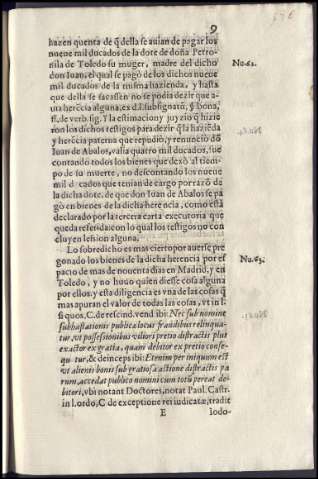 9
hazen quenta de q̃ della se auian de pagar los
nueue mil ducados de la dote de doña Petro-
nila de Toledo su muger, madre del dicho
don Iuan, el qual se pagò de los dichos nueue
mil ducados de la misma hazienda, y hasta
que della se sacassen no se podia dezir que a-
uia herẽcia alguna, ex d.l. subsignatũ, §. bona,
ff. de verb. sig. Y la estimacion y juyzio q̃ hizie
ron los dichos testigos para dezir q̃ la haziẽda
y herẽcia paterna que repudiò, y renunciò dõ
Iuan de Abalos, valia quatro mil ducados, fue
contando todos los bienes que dexò al tiem-
po de su muerte, no descontando los nueue
mil ducados que tenian de cargo por razõ de
la dicha dote, de que don Iuan de Abalos se pa
gò en bienes de la dicha herencia, como està
declarado por la tercera carta executoria que
queda referida: con lo qual los testigos no con
cluyen lesion alguna.
No. 62.
Lo sobredicho es mas cierto por auerse pre
gonado los bienes de la dicha herencia por es
pacio de mas de nouenta dias en Madrid, y en
Toledo, y no huuo quien diesse cosa alguna
por ellos, y esta diligencia es vna de las cosas q̃
mas apuran el valor de todas las cosas, vt in l.
si quos, C. de rescind. vend. ibi: Nec sub nomine
subhastationis publicæ locus fraudibus relinqua-
tur, vt possessionibus viliori pretio distractis plus
exactor ex gratia, quàm debitor ex pretio conse-
quatur, & deinceps ibi: Etenim per iniquum est
vt alienis bonis sub gratiosa actione distractis pa
rum, accedat publico nomini cum totũ pereat de-
bitori, vbi notant Doctores, notat Paul. Castr.
in l. ordo, C. de exceptione rei iudicatæ, tradit
No. 63.
E
lodo-